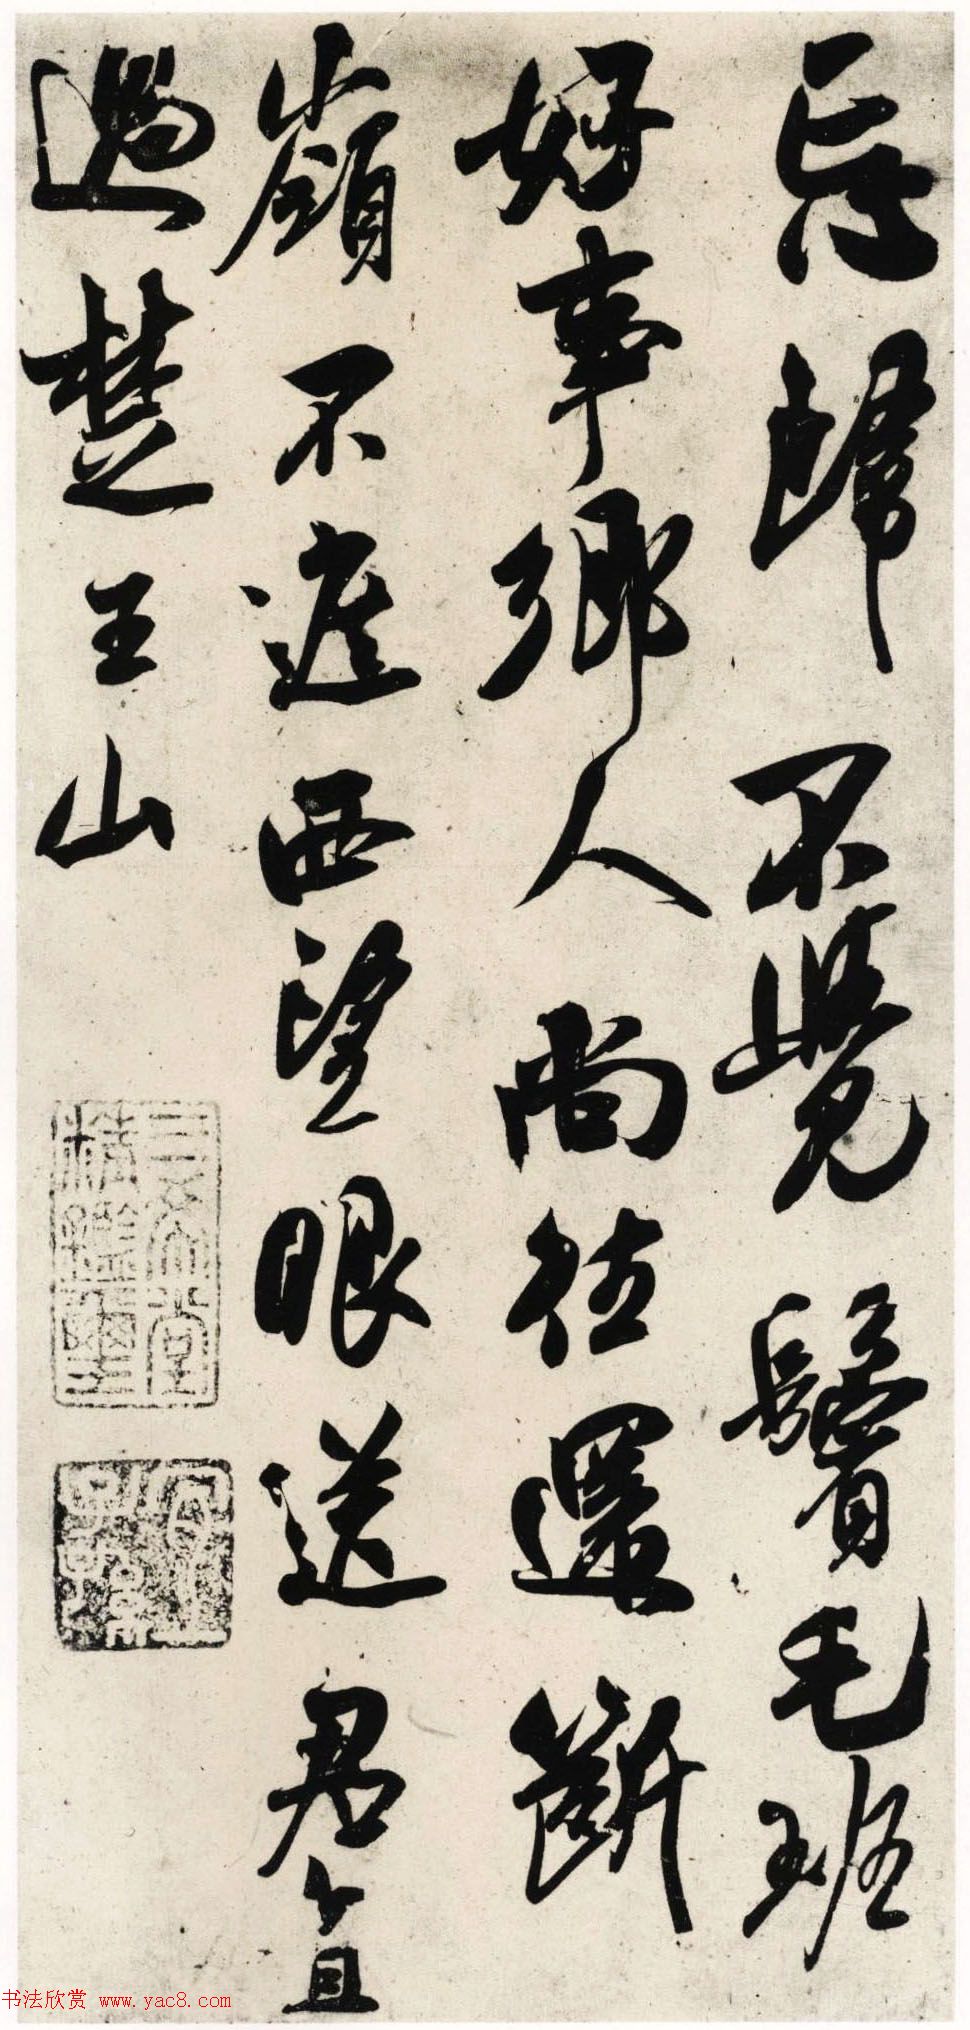 忘歸不覺鬢毛班
好事鄉人尚往還斷
嶺不遮西望眼送君直
過楚王山
三希堂
精鑑璽
宜子
孫
书法欣赏 www.yac8.com